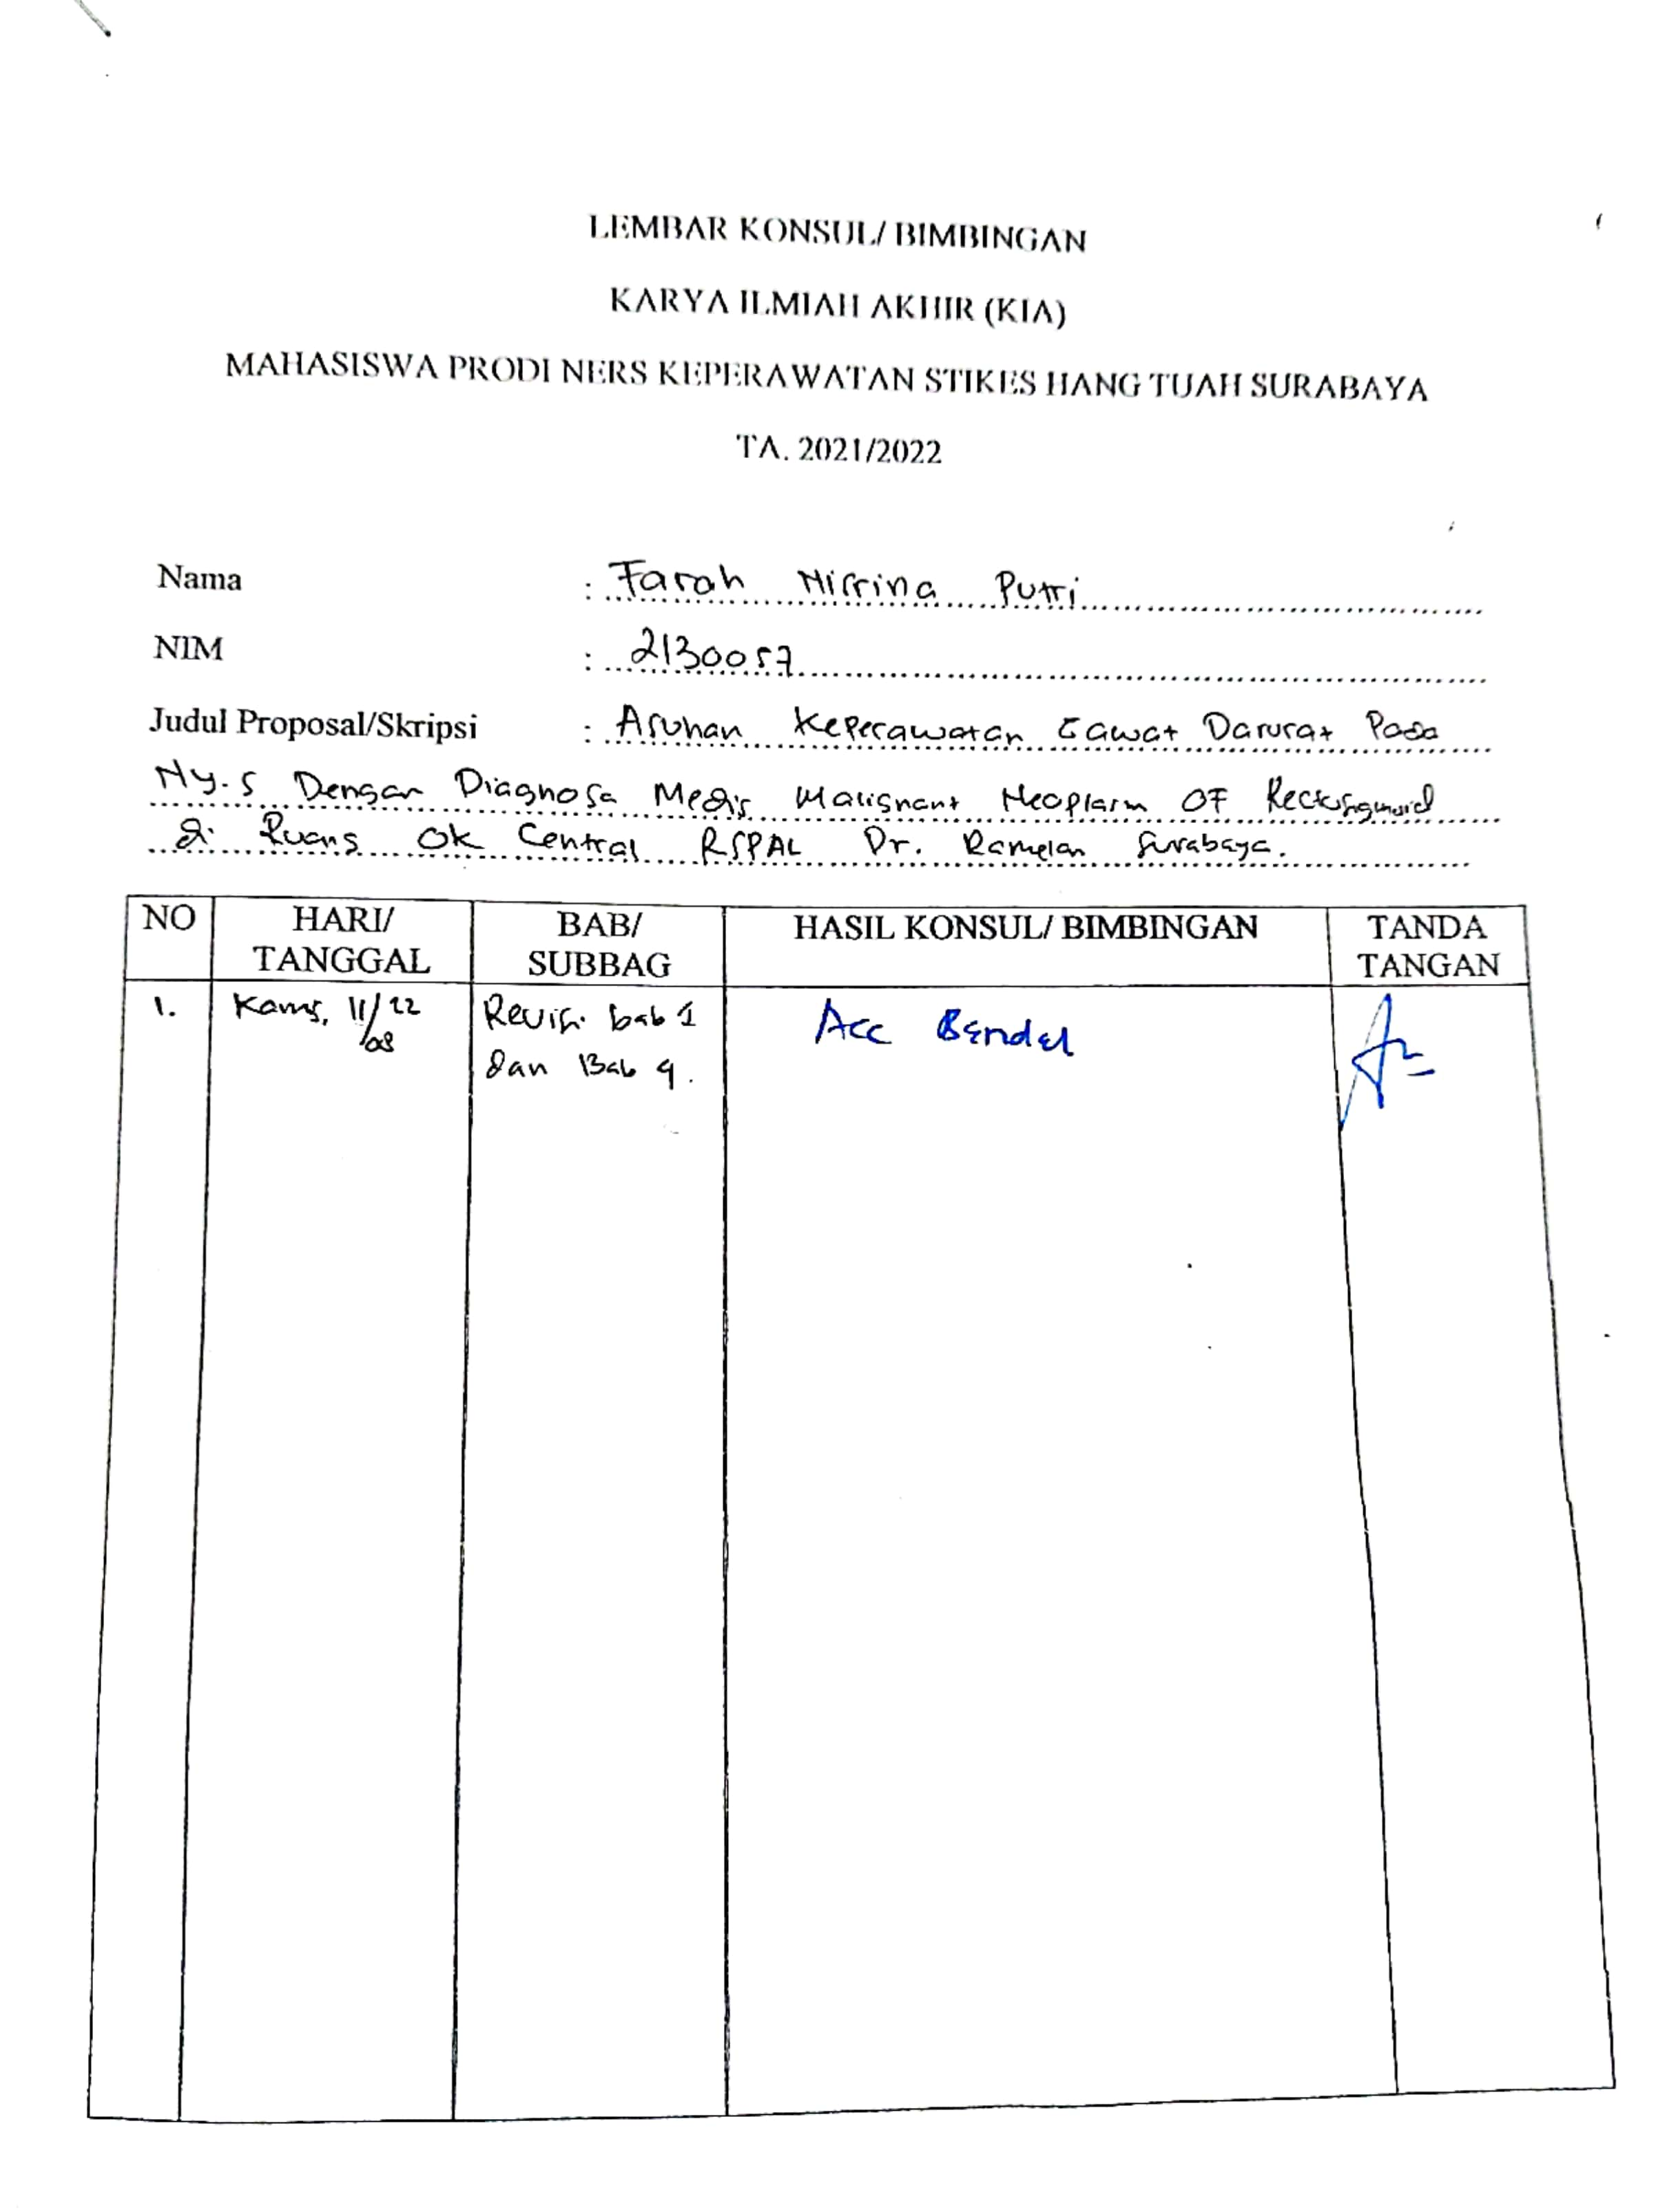 LEMBAR KONSUL/ BIMBINGAN
KARYA ILMIAH AKHIR (KIA)
MAHASISWA PRODI NERS KEPERAWATAN STIKES HANG TUAH SURABAYA
TA. 2021/2022
Nama : Farah Nirrina Putri
NIM : 2130057
Judul Proposal/Skripsi : Asuhan Keperawatan Gawat Darurat Pada
Ny. S Dengan Diagnosa Medis Malignant Neoplasm OF
di Ruang OK Central RSPAL Dr. Ramelan Surabaya.
NO HARI/ TANGGAL BAB/ SUBBAG HASIL KONSUL/ BIMBINGAN TANDA TANGAN
1. Kamis, 11/08 22 Revisi bab 1 Acc Bendel
dan Bab 4.